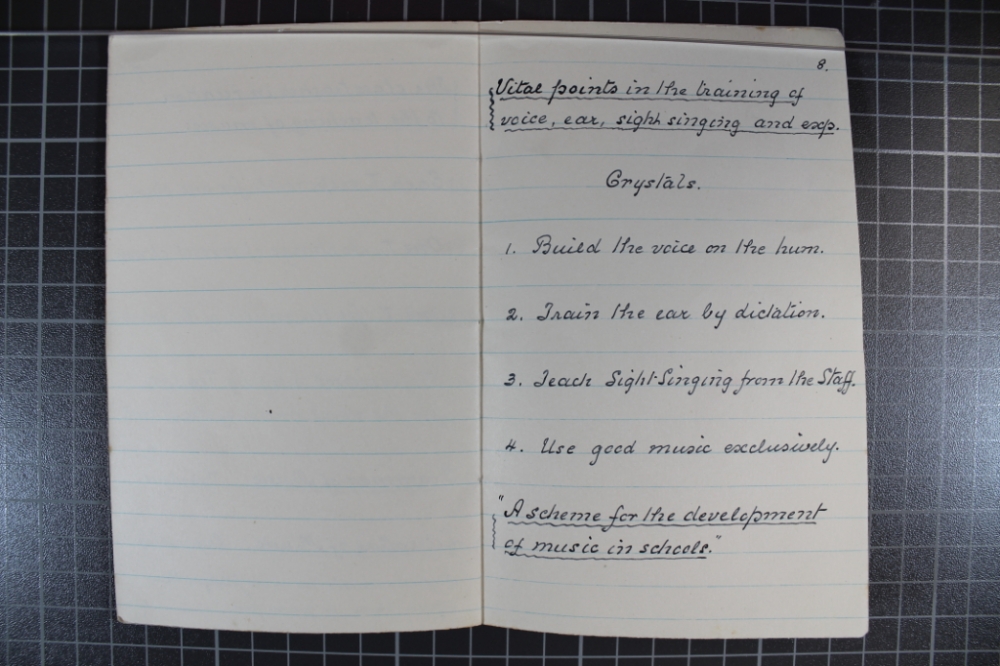 8.
Vital points in the training of
voice, ear, sight singing and exp.
Crystals.
1. Build the voice on the hum.
2. Train the ear by dictation.
3. Teach Sight-Singing from the Staff.
4. Use good music exclusively.
"A scheme for the development
of music in schools."